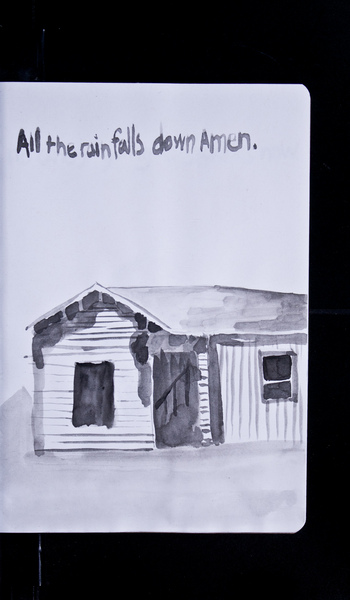 All the rain falls down Amen.